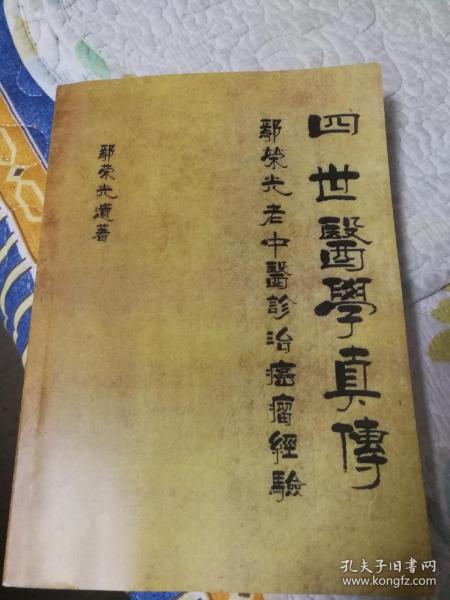 四世醫學真傳
鄢榮光老中醫診治癌瘤經驗
鄢榮光遺著
孔夫子旧书网
www.kongfz.com